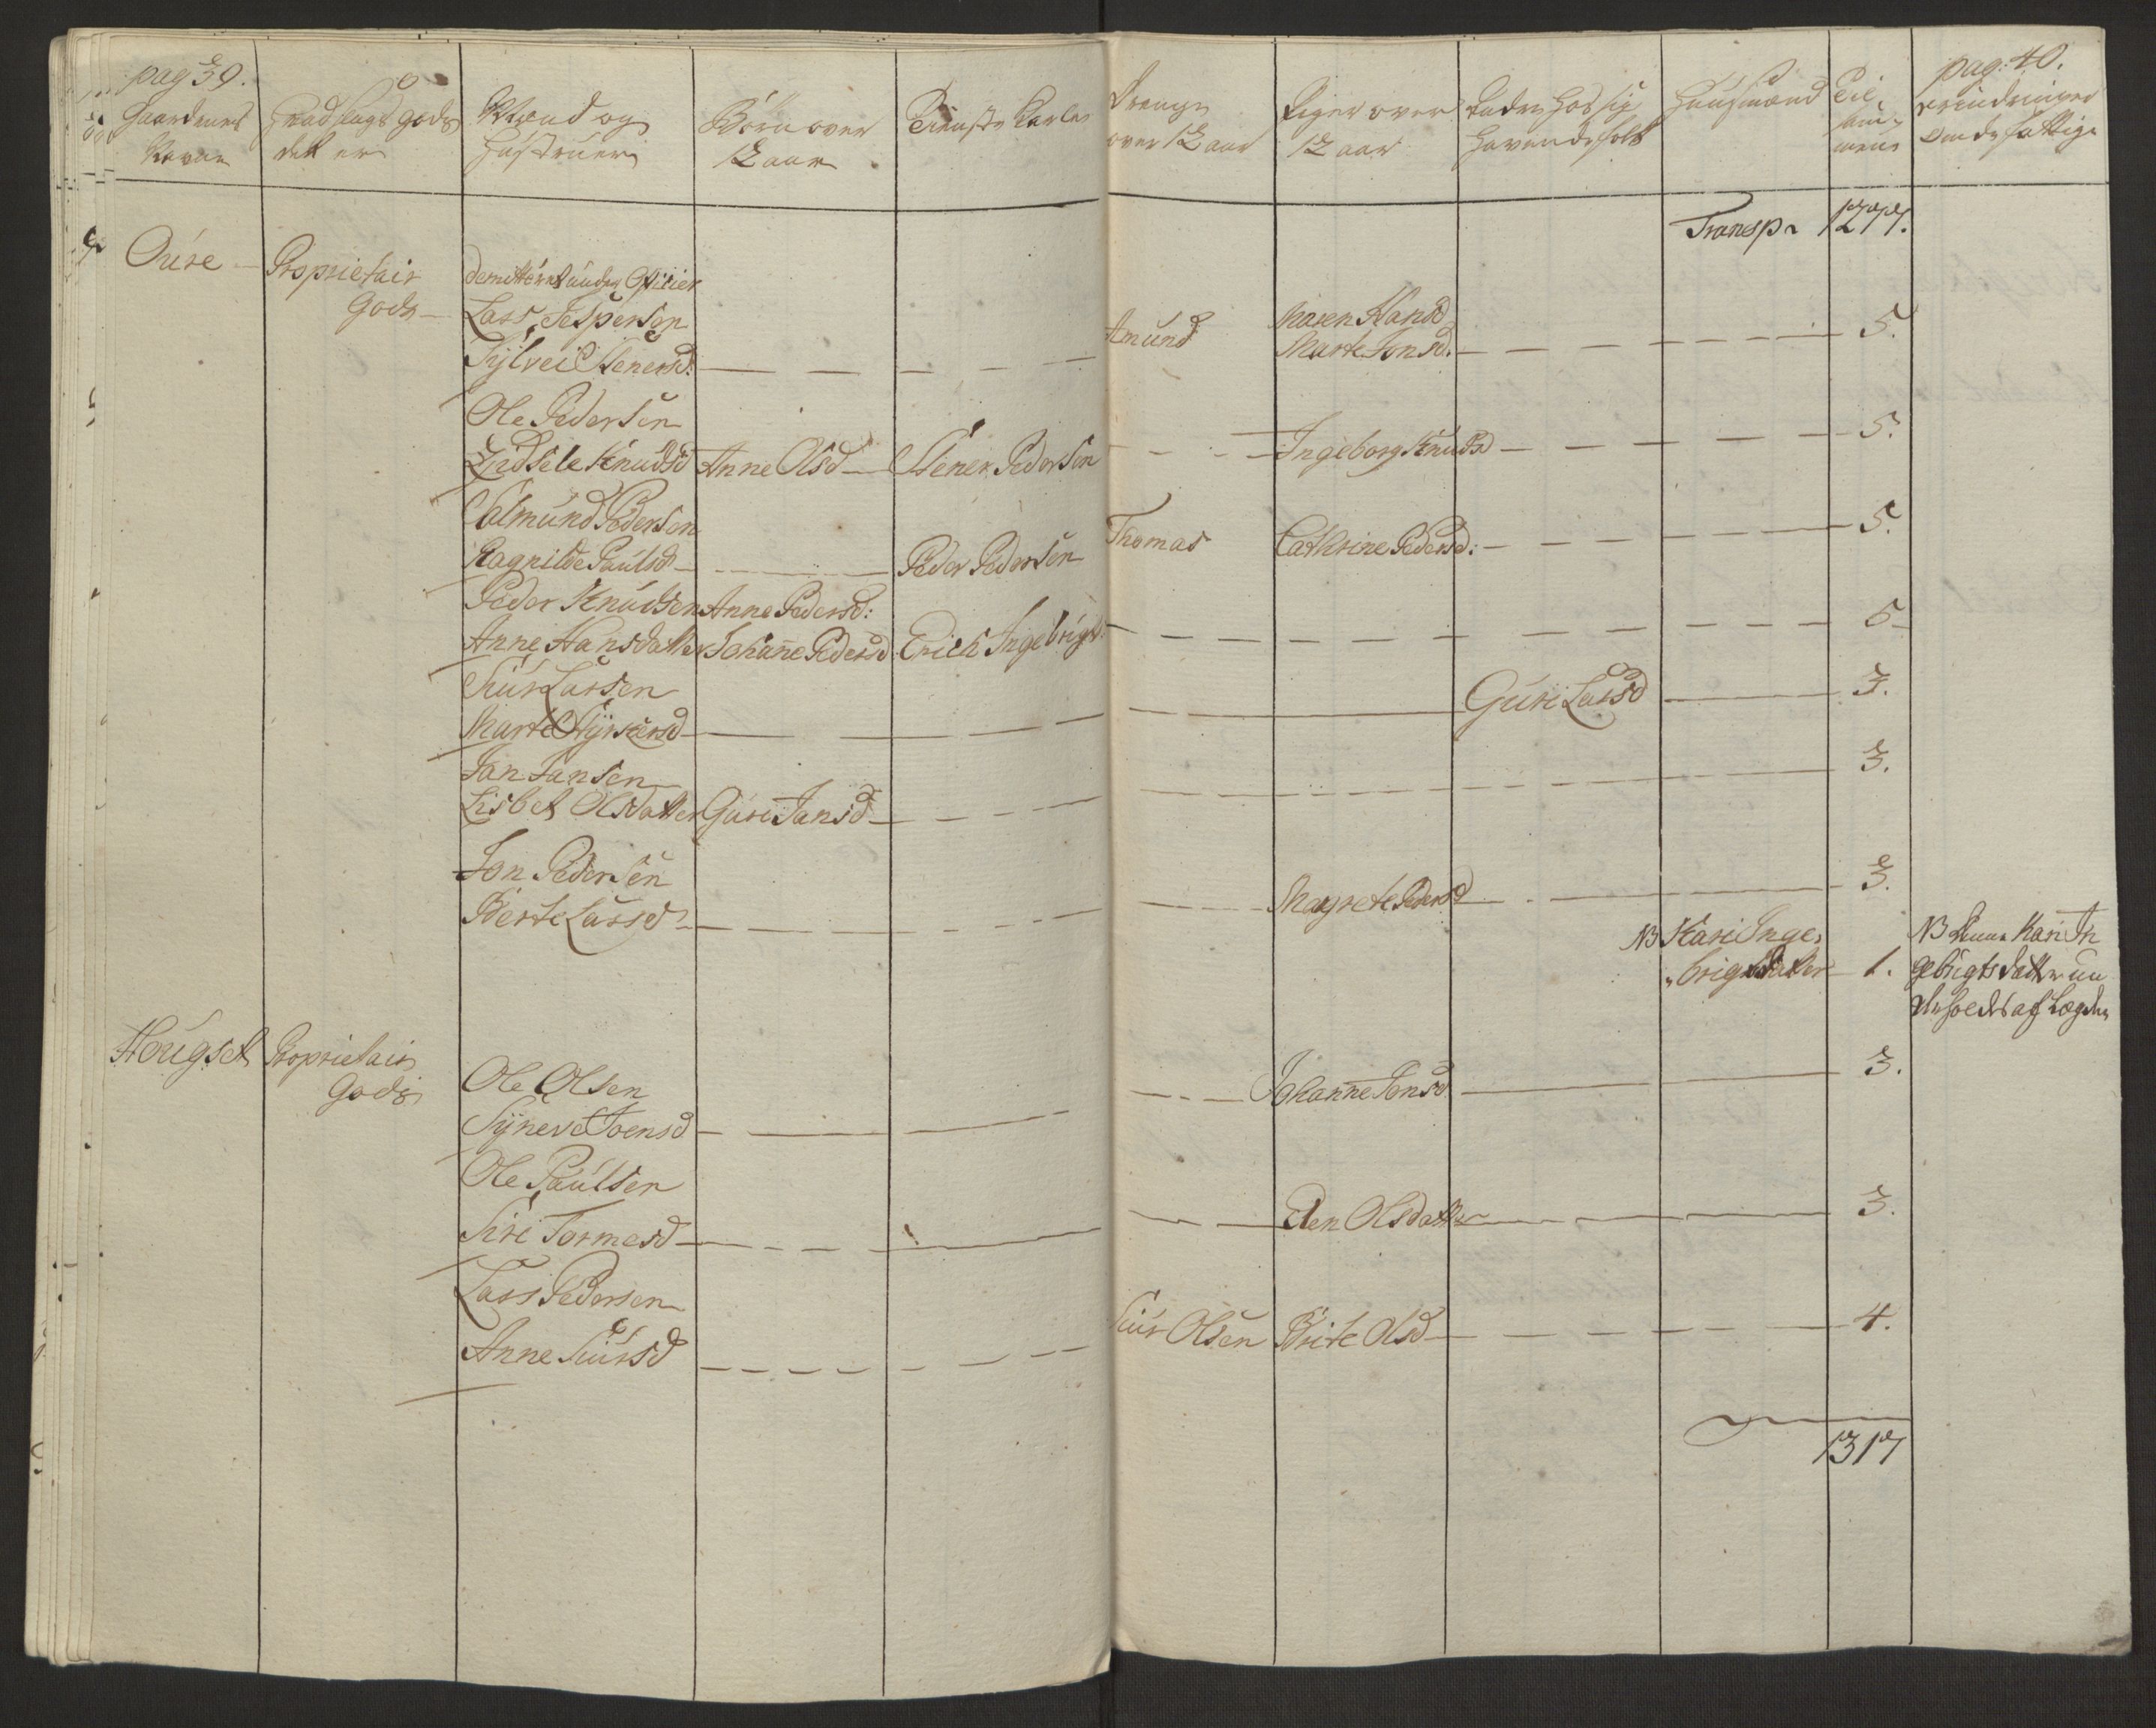 pag 39.
Gaardenes
Navne
Hvad slags gods
det er
Mænd og
Hustruer
Børn over
12 aar
Tieneste Karle
Drenge
over 12 aar
Piger over
12 aar
Andre hos sig
havende folk
Huusmænd
Til
sam-
mens
pag: 40.
Erindringer
om de fattige
Transp 1277.
Oure Proprietair
Gods
demitteret under Officier
Lars Jespersen
Sylvei Stenersd: Amund Maren Hansd
Marte Jonsd. 5.
Ole Pedersen
Zedsele Knudsd Anne Olsd Stener Pedersen Ingeborg Knudsd 5.
Colmund Pedersen
Ragnilde Paulsd Peder Pedersen Thomas Cathrine Pedersd: 5.
Peder Knudsen Anne Pedersd:
Anne Hansdatter Johanne Pedersd Erich Ingebrigts: 5
Siur Larsen
Marte Styrkersd Guri Larsd 3.
Jan Jansen
Lisbet Olsdatter Guri Jansd 3.
Jon Pedersen
Berte Larsd Magrete Pedersd 3.
NB Kari Inge-
brigtsdatter 1.
NB Denne Kari In
gebrigtsdatter un
derholdes af Lægden
Hougset Proprietair
Gods
Ole Olsen
Synneve Joensd Johanne Jonsd 3.
Ole Paulsen
Siri Tormosd Elen Olsdatter 3.
Lars Pedersen
Anne Siursd Siur Olsen Brite Olsd 4.
1317